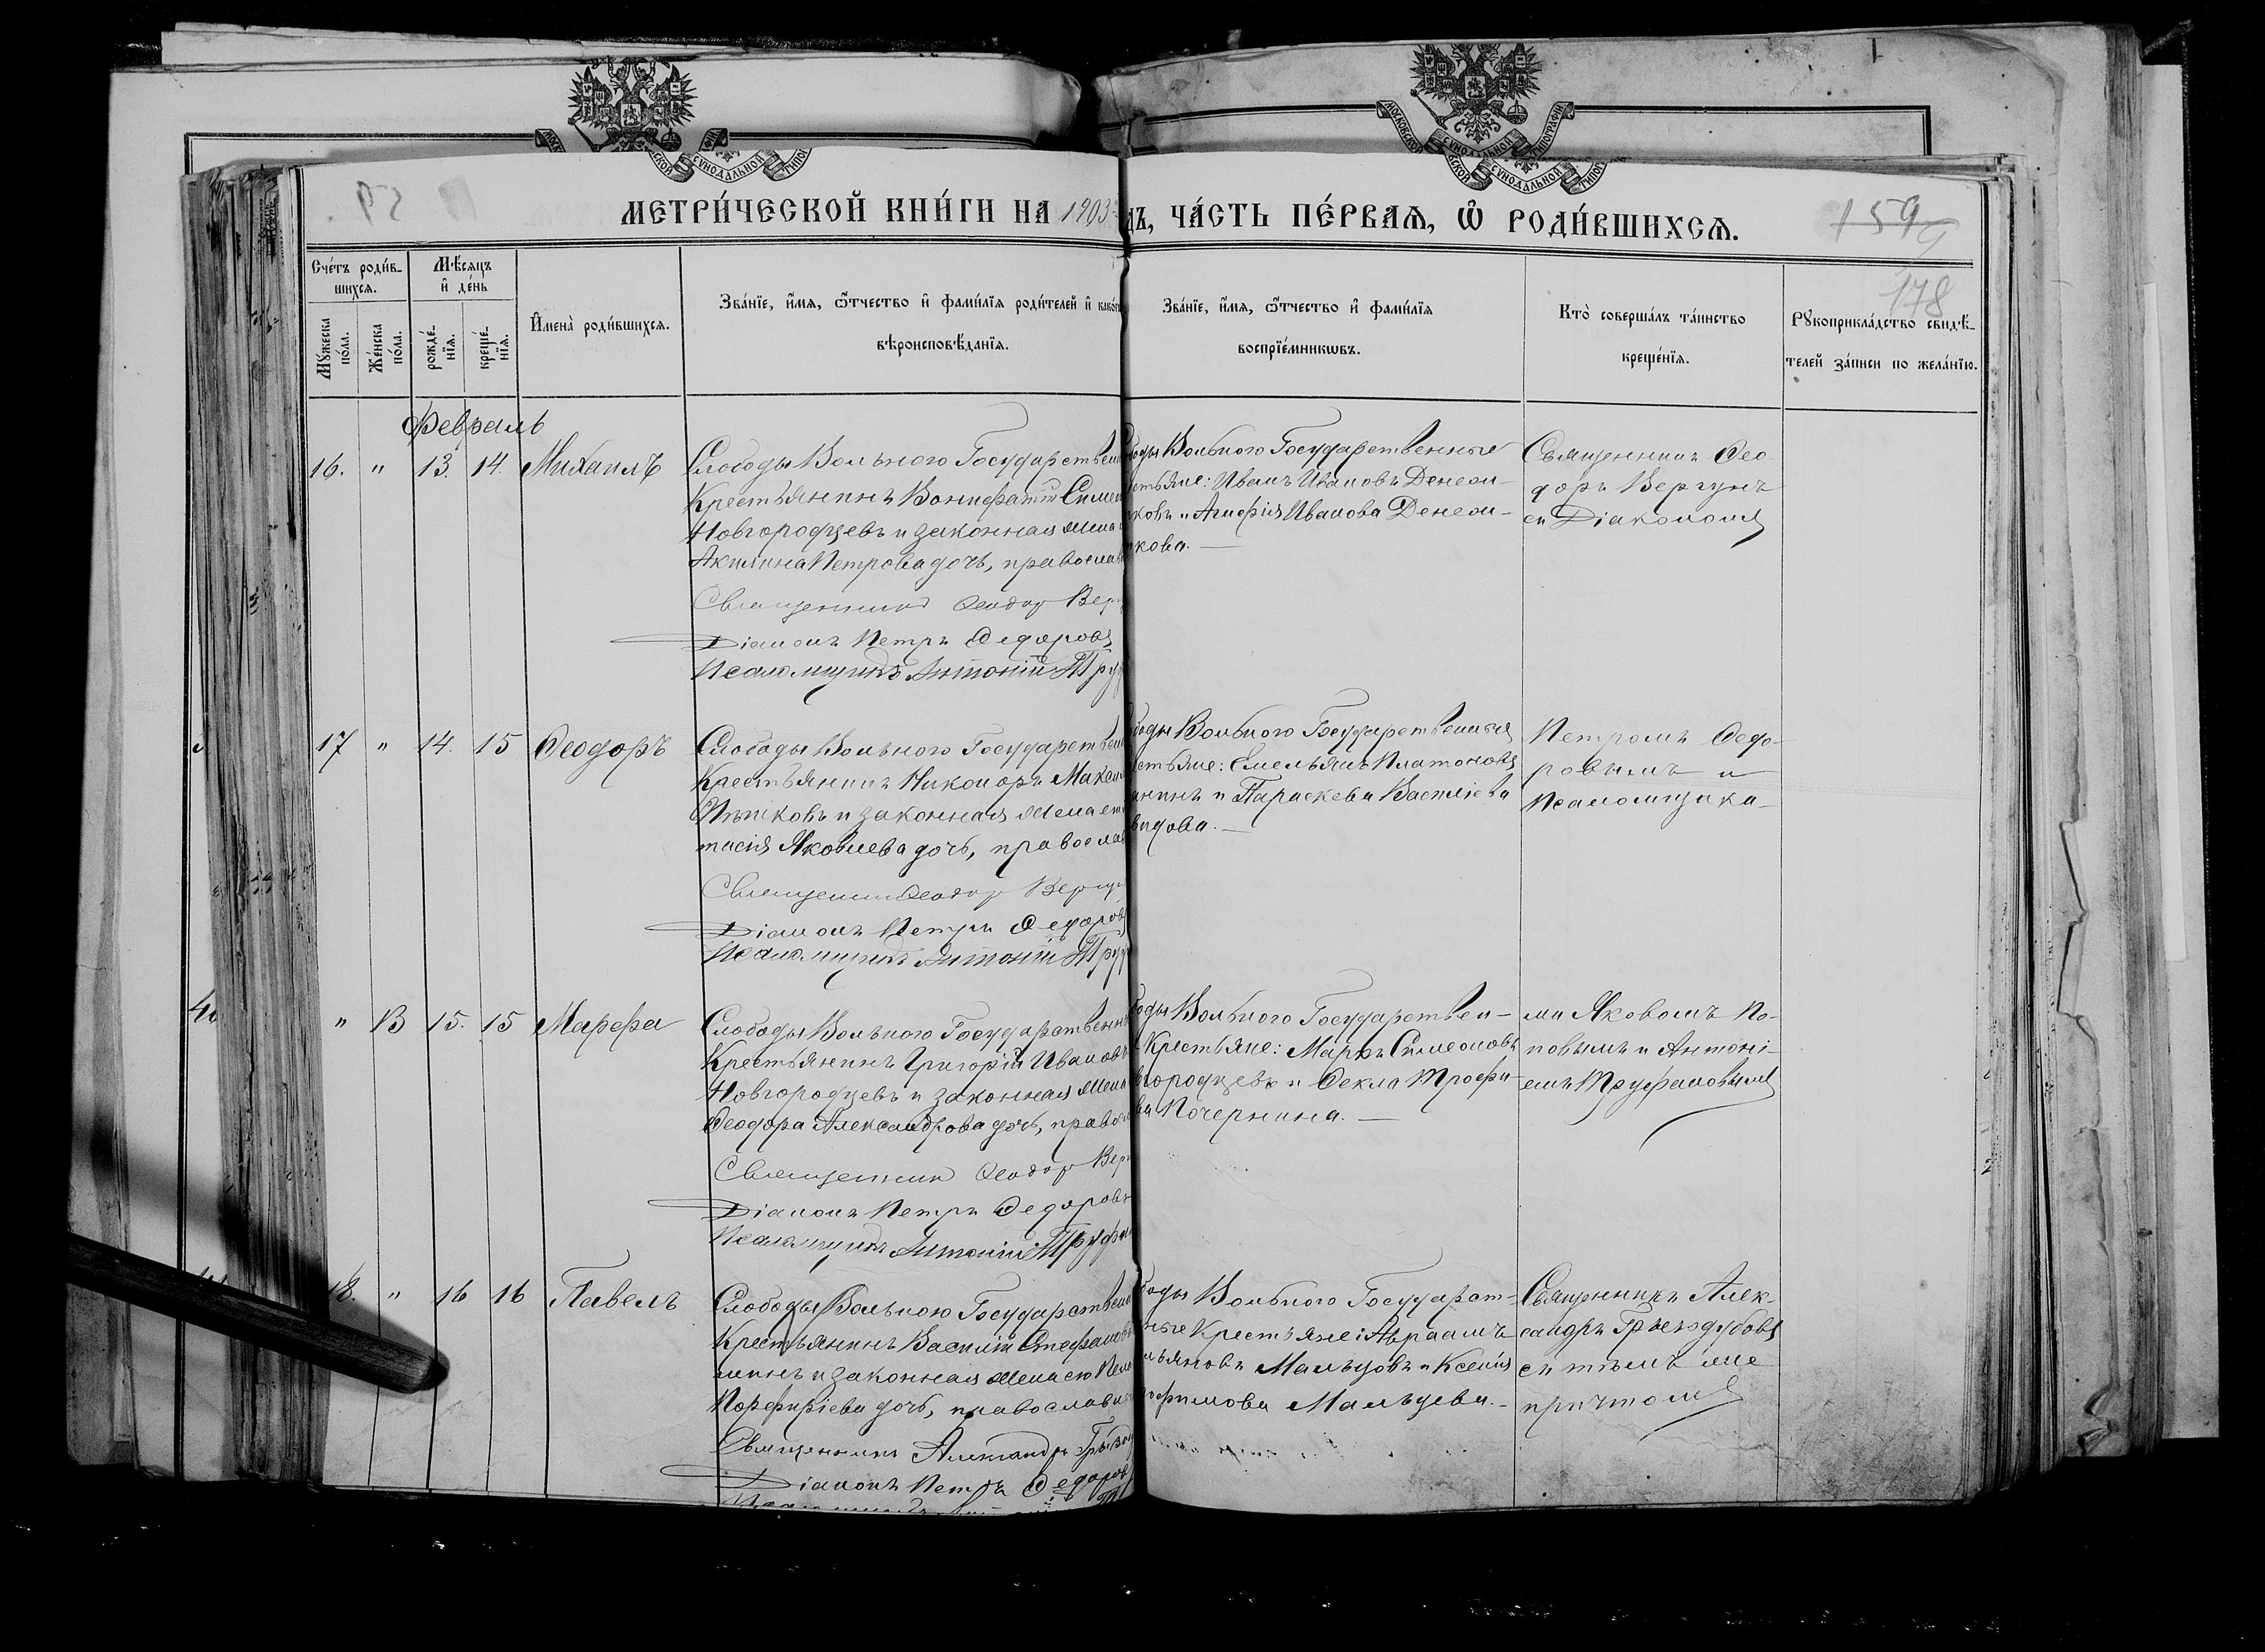 МОСКОВСКОЙ СѴНОДАЛЬНОЙ ТИПОГРАФІИ
159
178
МЕТРИ́ЧЕСКОЙ КНИ́ГИ НА 1903 ДЪ, ЧА́СТЬ ПЕ́РВАѦ, Ѡ҆ РОДИ́ВШИХСѦ.
Сче́тъ роди́в-
шихсѧ.
Мꙋжеска
по́ла.
Же́нска
по́ла.
Мѣ́сѧцъ
и҆ де́нь
рожде́-
нїѧ.
креще́-
нїѧ.
И҆мена̀ роди́вшихсѧ.
Зва́нїе, и҆́мѧ, ѻ҆́тчество и҆ фами́лїѧ роди́телей и҆ како́г
вѣроисповѣ́данїѧ.
Зва́нїе, и҆́мѧ, ѻ҆́тчество и҆ фами́лїѧ
воспрїе́мникѡвъ.
Кто̀ соверша́лъ та́инство
креще́нїѧ.
Рꙋкоприкла́дство свидѣ́-
телей за́писи по жела́нїю.
Февраль
16. " 13. 14. Михаилъ
Слободы Вольного Государствен
Крестьянинъ Вонифатій Симео
Новгородцевъ и законная жена
Акилина Петрова дочь, православ
Священникъ Феодор Вер
Діаконъ Петръ Федоровъ
Псаломщикъ Антоній Тру
оды Вольного Государственные
стьяне: Иванъ Ивановъ
ковъ и Агафія Иванова
кова. —
Священникъ Фео-
доръ Вергунъ
съ Діакономъ
17 " 14. 15 Феодоръ
Слободы Вольного Государствен
Крестьянинъ Никоноръ Макси
и законная жена ег
тасія Яковлева дочь, православ
Священникъ Феодор Вергун
Діаконъ Петръ Федоровъ
Псаломщикъ Антоній Труф
боды Вольного Государственныя
стьяне: Емельянъ Платоновъ
нинъ и Параскева Васильева
видова. —
Петромъ Федо-
ровымъ и
Псаломщика-
" 13 15. 15 Марфа
Слободы Вольного Государственн
Крестьянинъ Григорій Ивановъ
Новгородцевъ и законная жена
Феодора Александрова дочь, правосл
Священник Феодор Вер
Діаконъ Петръ Федоровъ
Псаломщикъ Антоній Труфан
боды Вольного Государствен-
Крестьяне: Маркъ Симеоновъ
вгородцевъ и Фекла Трофи-
ва Почернина. —
ми Яковомъ По-
повымъ и Антоні-
емъ Труфановымъ
18. " 16 16 Павелъ
Слободы Вольного Государствен
Крестьянинъ Василій Стефановъ
и законная жена его Пела
Порфиріева дочь, православн
Священникъ Александръ Грызод
Діаконъ Петръ Федоров
боды Вольного Государст-
ные Крестьяне: Авраамъ
льяновъ Мальцовъ и Ксенія
рофимова Мальцева. —
Священникъ Алек-
сандръ Грызодубовъ
съ тѣмъ же
причтомъ